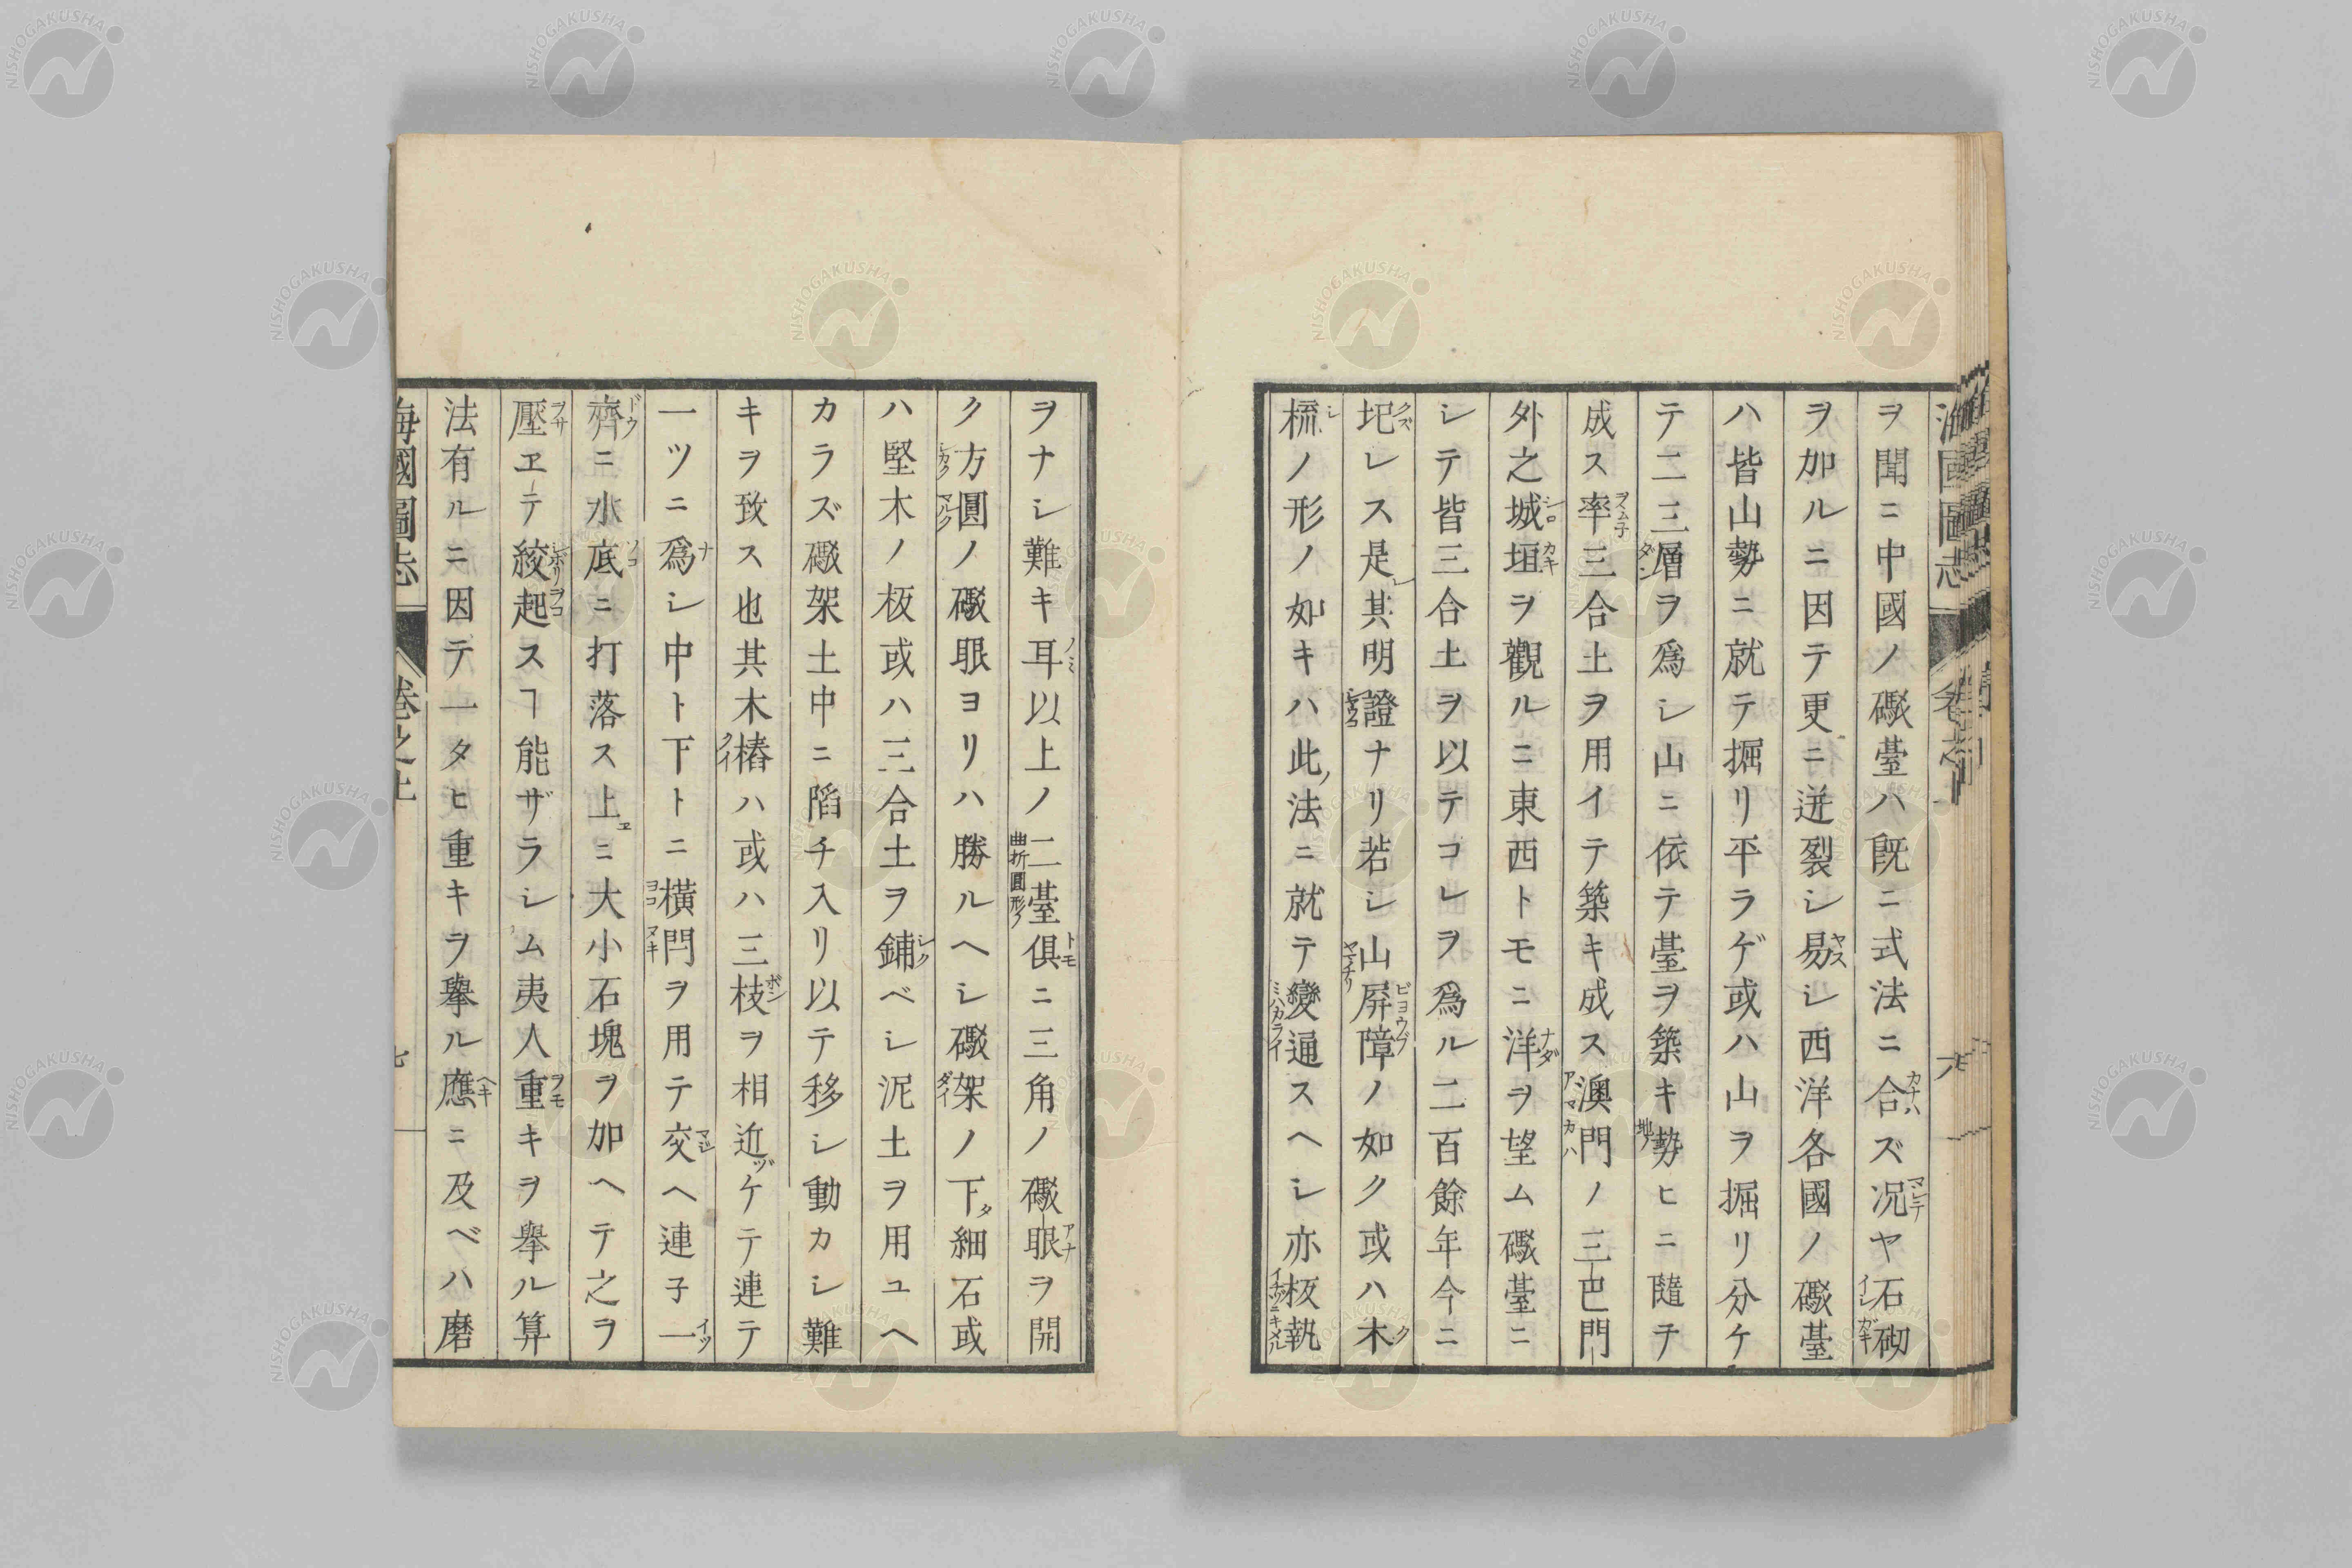 ヲ聞ニ中國ノ礮臺ハ旣ニ式法ニ合ズ况ヤ石砌
ヲ加ルニ因テ更ニ迸裂シ易シ西洋各國ノ礮臺
ハ皆山勢ニ就テ掘リ平ラゲ或ハ山ヲ掘リ分ケ
テ二三層ヲ爲シ山ニ依テ臺ヲ築キ勢ヒニ隨テ
成ス率三合土ヲ用イテ築キ成ス澳門ノ三巴門
外之城垣ヲ觀ルニ東西トモニ洋ヲ望ム礮臺ニ
シテ皆三合土ヲ以テコレヲ爲ル二百餘年今ニ
圮レス是其明證ナリ若シ山屏障ノ如ク或ハ木
梳ノ形ノ如キハ此ノ法ニ就テ變通スヘシ亦板執
ヲナシ難キ耳以上ノ二臺俱ニ三角ノ礮眼ヲ開
ク方圓ノ礮眼ヨリハ勝ルヘシ礮架ノ下タ細石或
ハ堅木ノ板或ハ三合土ヲ鋪ベシ泥土ヲ用ユヘ
カラズ礮架土中ニ陷チ入リ以テ移シ動カシ難
キヲ致ス也其木樁ハ或ハ三枝ヲ相近ヅケテ連テ
一ツニ爲シ中ト下トニ橫閂ヲ用テ交ヘ連子一
齊ニ水底ニ打落ス上ヱニ大小石塊ヲ加ヘテ之ヲ
壓ヱテ絞起スヿ能ザラシム夷人重キヲ擧ル算
法有ルニ因テ一タヒ重キヲ擧ル應ニ及ベハ磨
海國圖志
卷之上
七
NISHOGAKUSHA